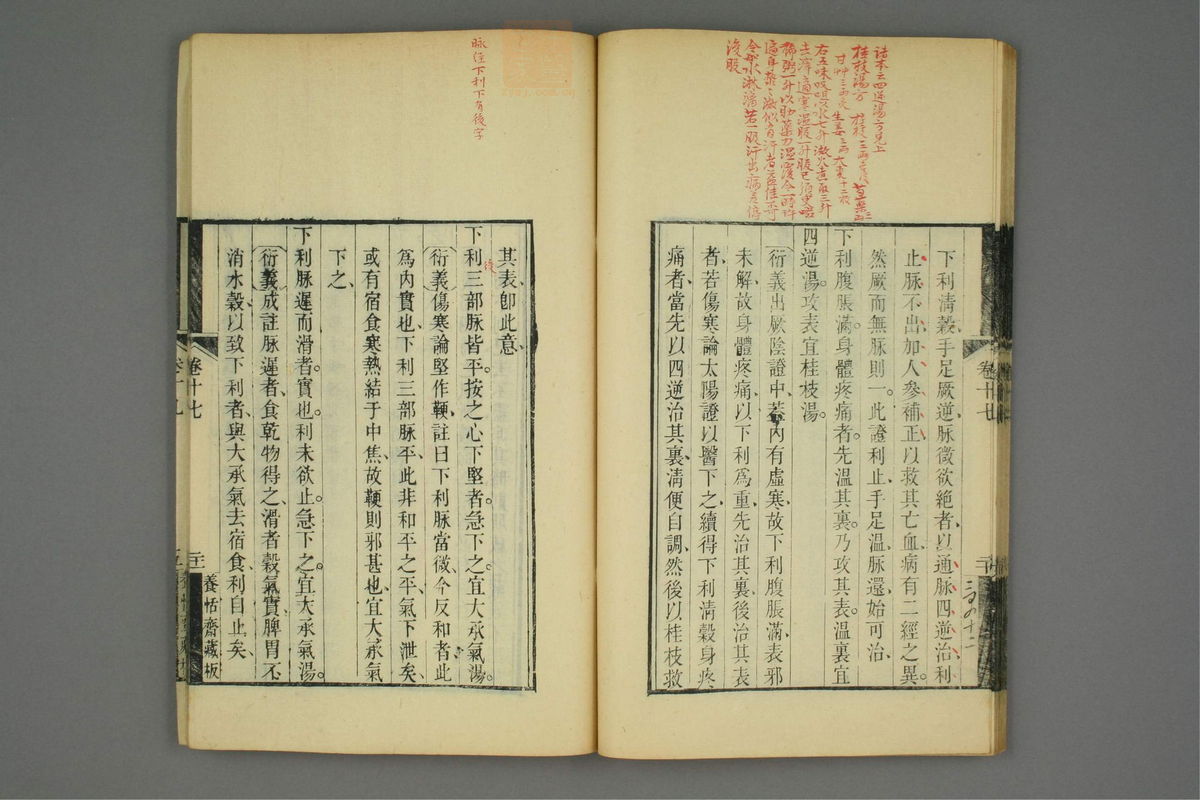 諸本云四逆湯方見上
桂枝湯方 桂枝三兩去皮 芍藥三兩
甘艸三兩炙 生姜三兩 大棗十二枚
右五味㕮咀以水七升 微火煮取三升
去滓適寒溫服一升服已須臾啜
稀粥一升以助藥力溫覆令一時許
遍身漐漐微似有汗者益佳不可
令如水淋漓若一服汗出病差停
後服
下利淸穀手足厥逆脉微欲絕者以通脉四逆治利
止脉不出加人參補正以救其亡血病有二經之異
然厥而無脉則一此證利止手足溫脉還始可治
下利腹脹滿身體疼痛者先溫其裏乃攻其表溫裏宜
四逆湯攻表宜桂枝湯
衍義出厥陰證中葢內有虛寒故下利腹脹滿表邪
未解故身體疼痛以下利爲重先治其裏後治其表
者若傷寒論太陽證以醫下之續得下利淸穀身疼
痛者當先以四逆治其裏淸便自調然後以桂枝救
卷十七
二十
脉經下利下有後字
其表卽此意
下利三部脉皆平按之心下堅者急下之宜大承氣湯
後
衍義傷寒論堅作鞕註曰下利脉當微今反和者此
爲內實也下利三部脉平此非和平之平氣下泄矣
或有宿食寒熱結于中焦故鞕則邪甚也宜大承氣
下之
下利脉遲而滑者實也利未欲止急下之宜大承氣湯
衍義成註脉遲者食乾物得之滑者穀氣實脾胃不
消水穀以致下利者與大承氣去宿食利自止矣
卷十七
二十
養恬齋藏板